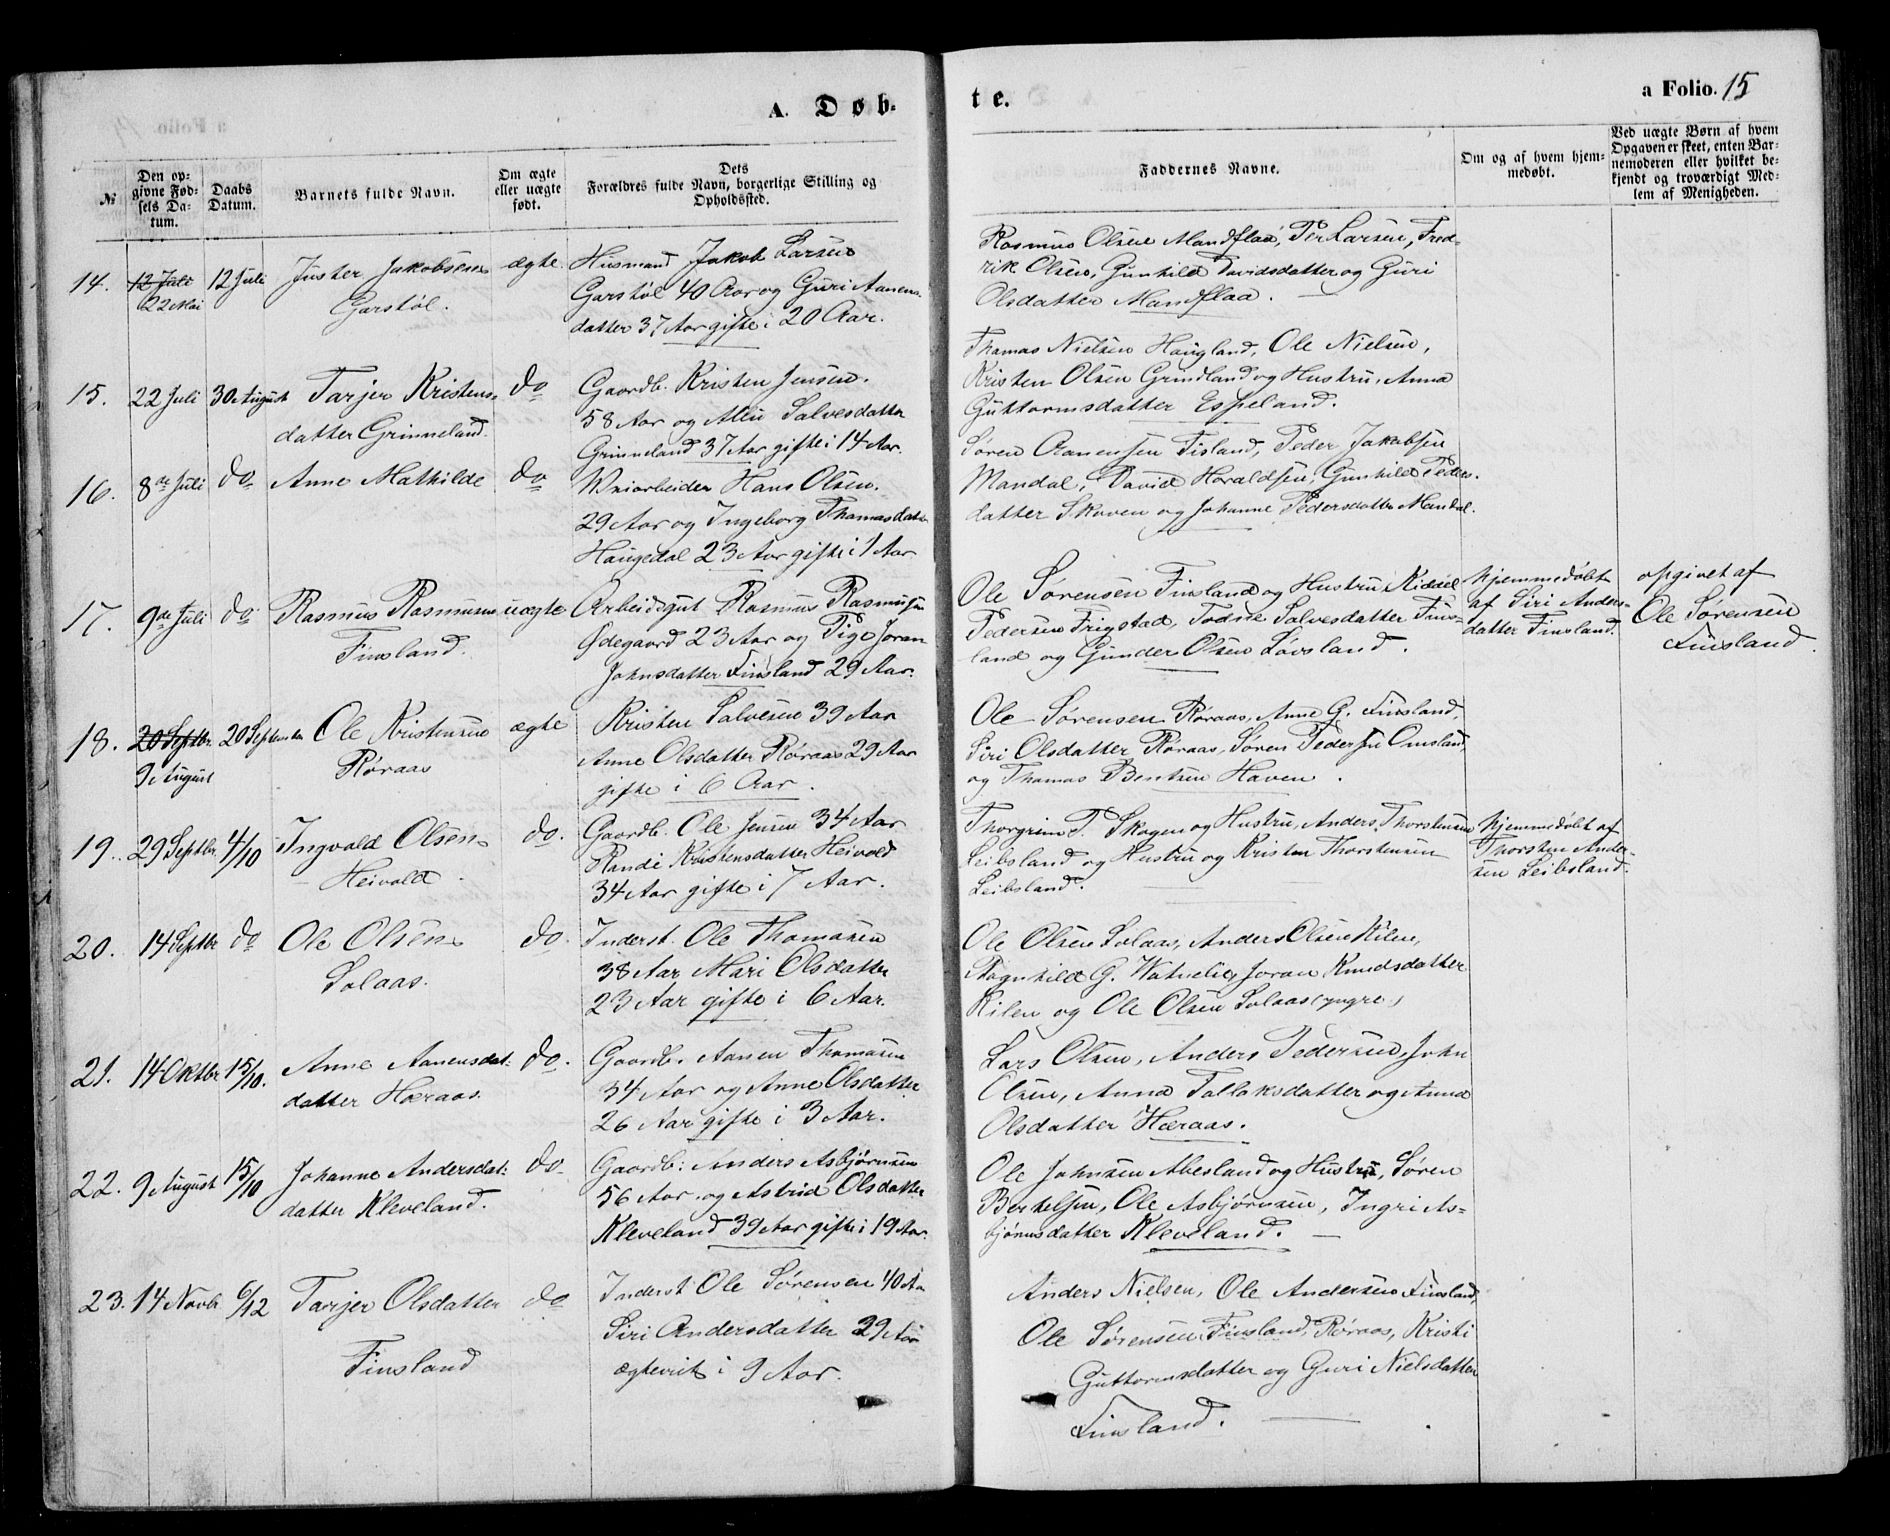 A. Døb-
te.
a Folio. 15
№
Den op-
givne Fød-
sels Da-
tum.
Daabs
Datum.
Barnets fulde Navn.
Om ægte
eller uægte
født.
Dets
Forældres fulde Navn, borgerlige Stilling og
Opholdssted.
Faddernes Navne.
Om og af hvem hjem-
medøbt.
Ved uægte Børn af hvem
Opgaven er skeet, enten Bar-
nemoderen eller hvilket be-
kjendt og troværdigt Med-
lem af Menigheden.
14. 12 Juli 12 Juli Juster Jakobsen ægte. Husmand Jakob Larsen
22 Mai Garstøl. Garstøl 40 Aar og Guri Aanens-
datter 37 Aar gifte i 20 Aar.
Rasmus Olsen Mandflaa, Per Larsen, Fred-
rik Olsen, Gunhild Davidsdatter og Guri
Olsdatter Mandflaa.
15. 22 Juli 30 August Tarjer Kristens- do Gaardb. Kristen Jensen.
datter Grinneland. 58 Aar og Allu Salvesdatter
Grinneland 37 Aar gifte i 14 Aar.
Thomas Nielsen Haugland, Ole Nielsen,
Kristen Olsen Grindland og Hustru, Anna
Guttormsdatter Espeland.
16. 8de Juli do Anne Mathilde do Veiarbeider Hans Olsen.
29 Aar og Ingeborg Thomasdatter
Haugedal 23 Aar gifte i 1 Aar
Søren Aanensen Fisland, Peder Jakobsen
Mandal, David Haraldsen, Gunhild Peders-
datter Skoven og Johanne Pedersdatter Mandal.
17. 9de Juli do Rasmus Rasmusen uægte Arbeidsgut Rasmus Rasmusen
Finsland. Ødegaard 23 Aar og Pige Joran
Johnsdatter Finsland 29 Aar.
Ole Sørensen Finsland og Hustru, Kiddel
Pedersen Frigstad, Todne Salvesdatter Fins-
land og Gunder Olsen Løvsland.
hjemmedøbt
af Siri Anders-
datter Finsland.
opgivet af
Ole Sørensen
Finsland.
18. 20 Septbr. 20 September Ole Kristensen ægte Kristen Salvesen 39 Aar
9 August Røraas Anne Olsdatter Røraas 29 Aar
gifte i 6 Aar.
Ole Sørensen Røraas, Anne G. Finsland,
Siri Olsdatter Røraas, Søren Pedersen Omsland
og Thomas Bentsen Haven.
19. 29 Septbr. 4/10 Ingvald Olsen do. Gaardb. Ole Jensen 34 Aar
Heivold. Randi Kristensdatter Heivold
34 Aar gifte i 7 Aar.
Thorgrim T. Skagen og Hustru, Anders Thorstensen
Leibsland og Hustru og Kristen Thorstensen
Leibsland.
hjemmedøbt af
Thorsten Ander-
sen Leibsland.
20. 14 Septbr do Ole Olsen do. Inderst. Ole Thomasen
Solaas. 38 Aar Mari Olsdatter
23 Aar gifte i 6 Aar.
Ole Olsen Solaas, Anders Olsen Kilen,
Ragnhild G. Vatnelie, Joran Knudsdatter
Kilen og Ole Olsen Solaas (yngre)
21. 14 Oktbr 15/10. Anne Aanensdat- do. Gaardb. Aanen Thomasen
datter Hæraas. 34 Aar og Anne Olsdatter
26 Aar gifte i 3 Aar.
Lars Olsen, Anders Pedersen, John
Olsen, Anna Tallaksdatter og Anna
Olsdatter Hæraas.
22. 9 August 15/10 Johanne Andersdat- do. Gaardb: Anders Asbjørnsen
datter Kleveland. 56 Aar og Astrid Olsdatter
Kleveland 39 Aar gifte i 19 Aar.
Ole Johnsen Abesland og Hustru, Søren
Bertelsen, Ole Asbjørnsen, Ingri As-
bjørnsdatter Kleveland.
23. 14 Novb 6/12 Tarjer Olsdatter do Inderst Ole Sørensen 40 Aa
Finsland Siri Andersdatter 29 Aar
ægteviet i 9 Aar.
Anders Nielsen, Ole Andersen Finsland,
Ole Sørensen Finsland, Røraas, Kristi
Guttormsdatter og Guri Nielsdatter
Finsland.